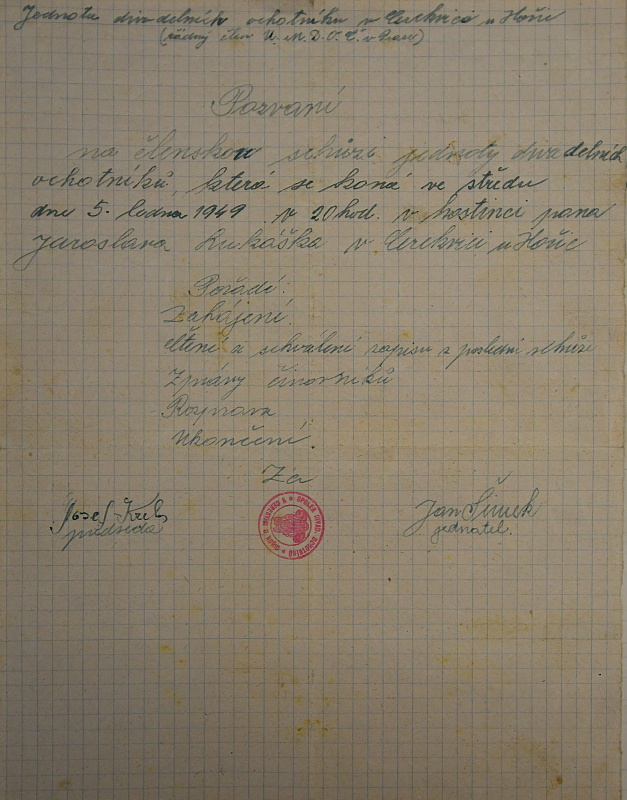 Jednota divadelních ochotníků v Cerekvici u Hořic
(řádný člen Ú. M. D. O. Č. v Praze)
Pozvání
na členskou schůzi jednoty divadelních
ochotníků, která se koná ve středu
dne 5. ledna 1949 v 20 hod. v hostinci pana
Jaroslava Lukáška v Cerekvici u Hořic
Pořadí:
Zahájení.
Čtení a schválení zápisu z poslední schůze
Zprávy činovníků
Rozprava
Ukončení.
Za
Josef
předseda
Jan Šimek
jednatel.
SPOLEK DIVAD. OCHOTNÍKŮ